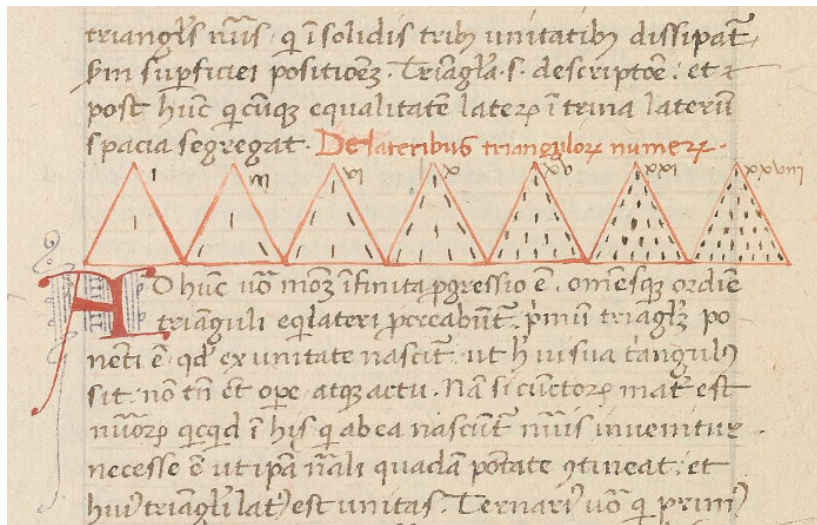 triangl's nu̅s, q̇ i̅ solidis trib; unitatib; dissipat̅,
s̅m sup̱ficiei positio̅ez. Tria̅gl'a .s. descriptio̅e: et
post hu̅c q̇cu̅q; equalitate̅ laterꝝ i̅ trina lateru̅
spacia segregat. De lateribus triangulorꝝ numerꝝ.
I III VI X XV XXI XXVIII
AD hu̅c uo̅ moz i̅finita ꝓgressio e̅. om̅esq; ordi̅e
tria̅guli eq̇lateri ꝓcreabu̅t̅. p̍mu̅ tria̅gl'z po
ne̅ti e̅, qd̍ ex unitate nascit̅. ut h̍ ui sua t̍angul9
sit. no̅ tn̅ et ope̅ atq; actu. Na̅ si cu̅ctorꝝ mat̍ est
nu̅orꝝ q̇cq̇d i̅ his q̇ ab ea nascu̅t̅ nu̅is inuenitur
necesse e̅ ut ip̅a n̅ali quada̅ po̅tate ꝯtineat. et
hui9 triangl'i lat9 est unitas. Ternari9 uo̅ q̇ prim9